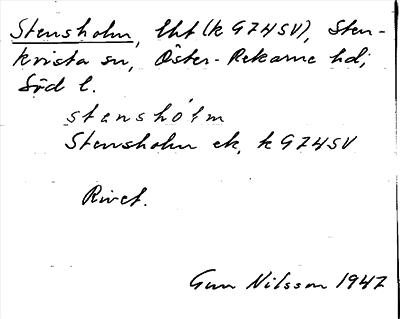 Stensholm, lht (k G74SV), Sten-
kvista sn, Öster-Rekarne hd,
Söd l.
stenshólm
Stensholm ek, k G74SV
Rivet.
Gun Nilsson 1947